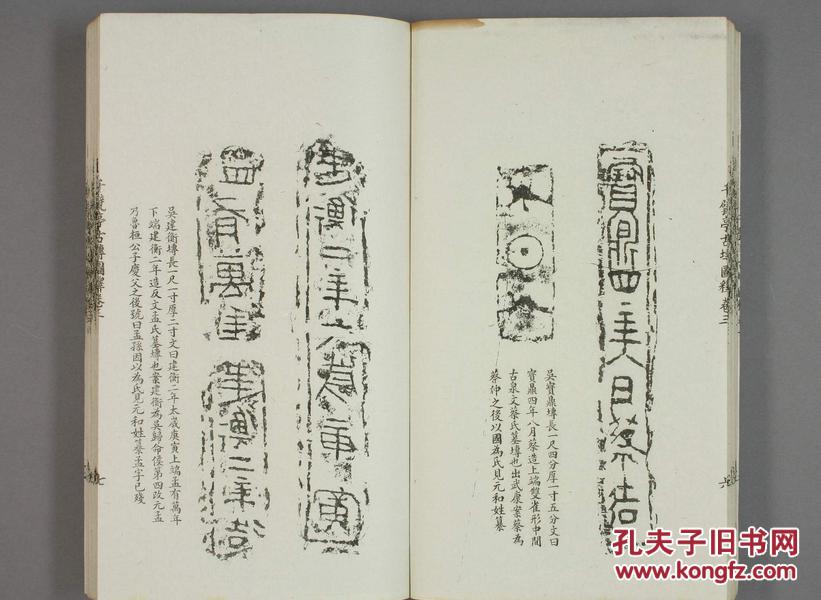 寶鼎四年八月蔡造
吳寶鼎塼長一尺四分厚一寸五分文曰
寶鼎四年八月蔡造上端雙雀形中間
古泉文蔡氏墓塼也出武康案蔡為
蔡仲之後以國為氏見元和姓纂
建衡二年太歲庚寅
孟有萬年
建衡二年造
吳建衡塼長一尺一寸厚二寸文曰建衡二年太歲庚寅上端孟有萬年
下端建衡二年造反文孟氏墓塼也案建衡為吳歸命侯第四改元孟
乃魯桓公子慶父之後號曰孟孫因以為氏見元和姓纂孟字已殘
千甓亭古塼圖釋卷三
孔夫子旧书网
www.kongfz.com